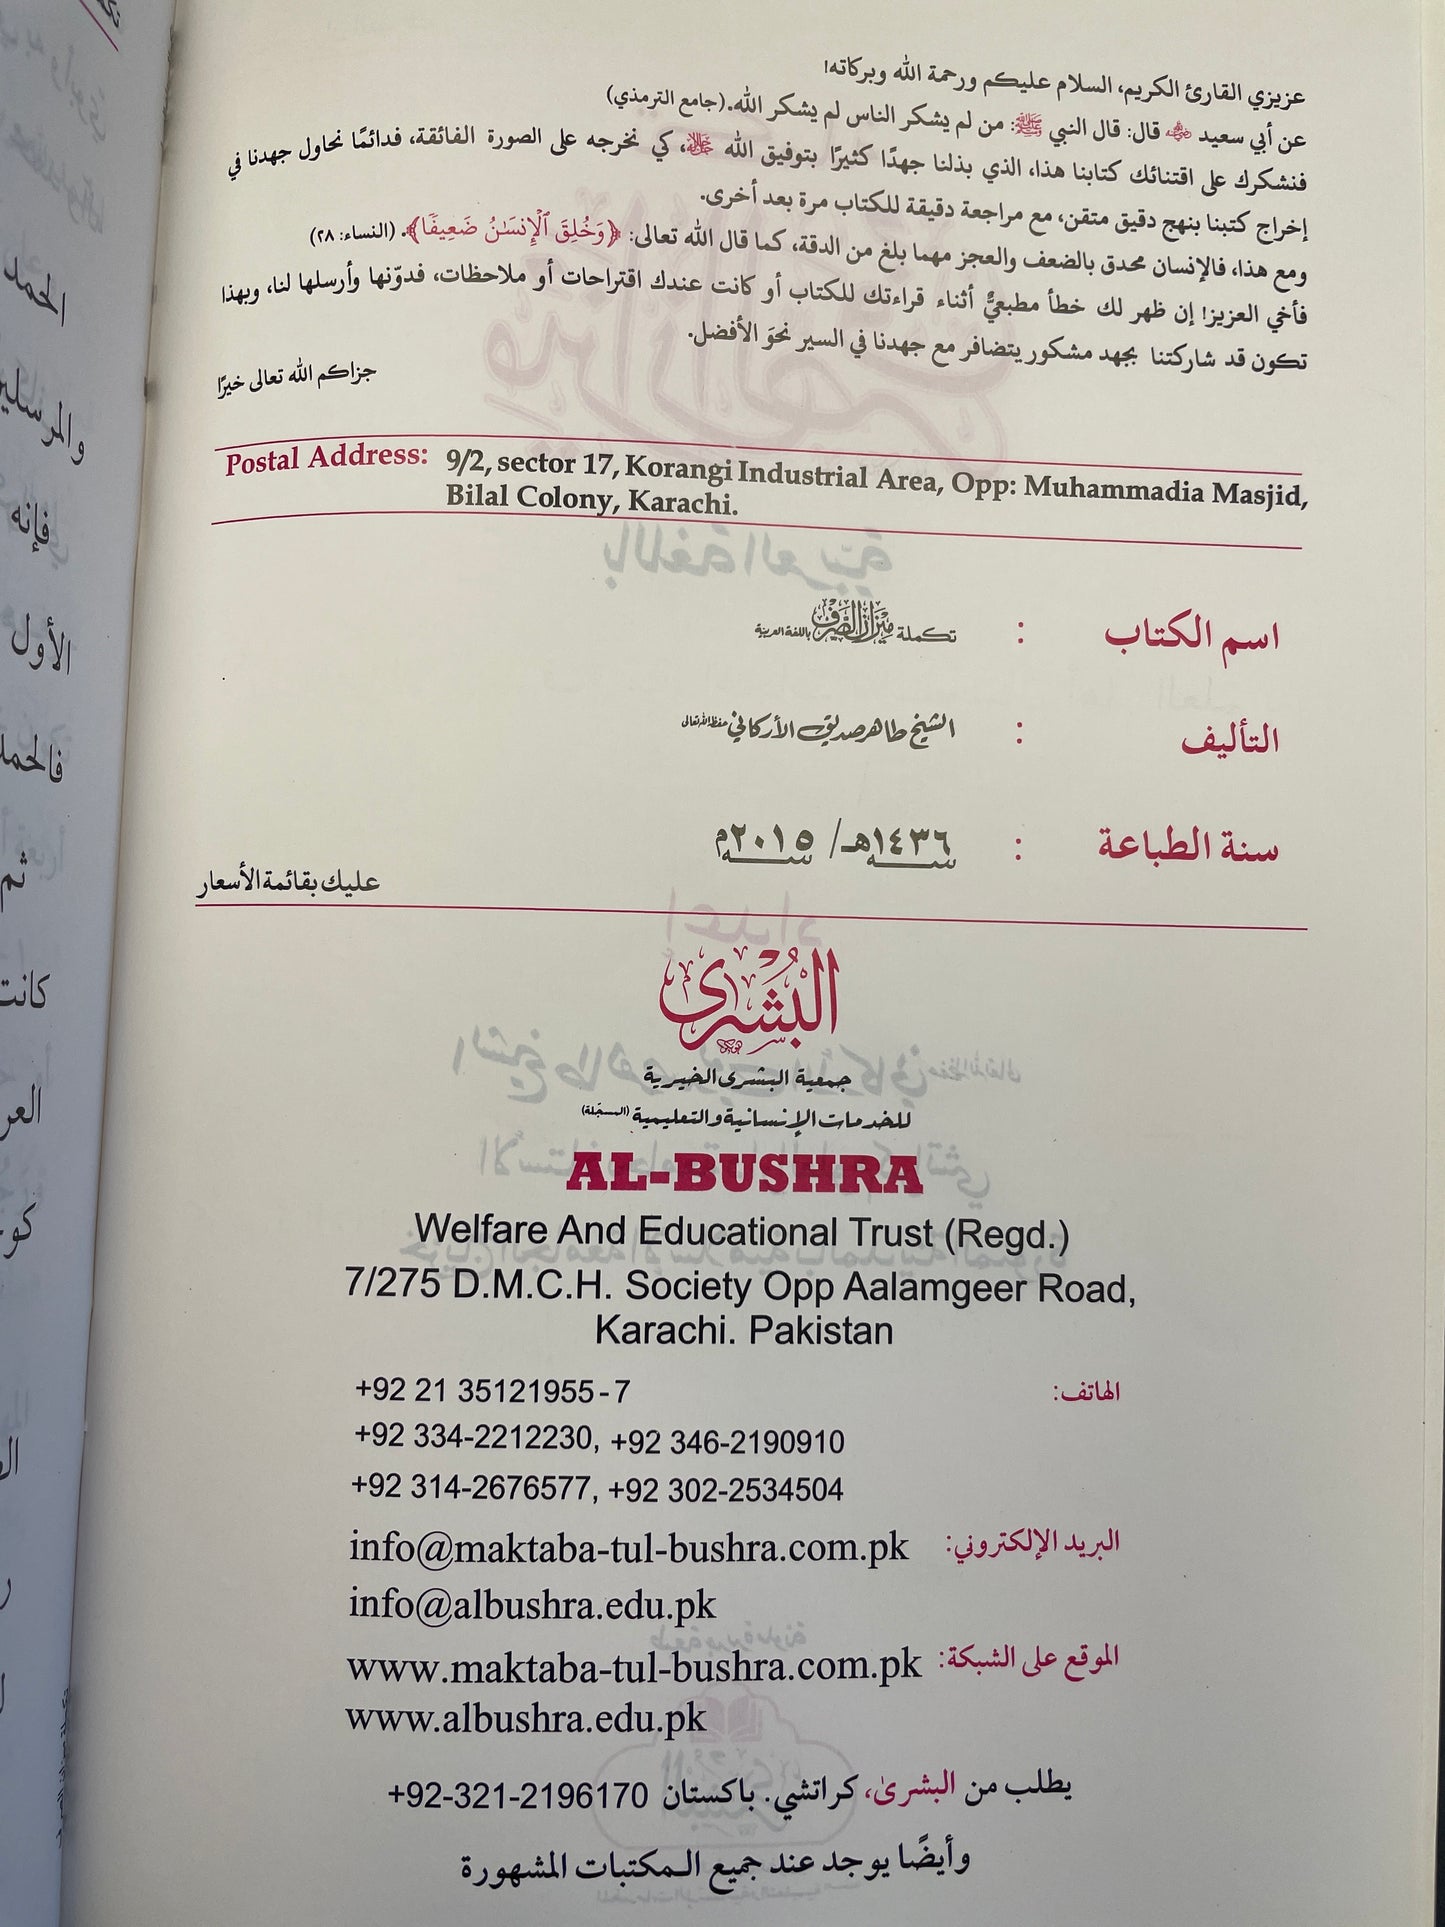 عزيزي القارئ الكريم، السلام عليكم ورحمة الله وبركاته!
عن أبي سعيد ﷺ قال: قال النبي ﷺ: من لم يشكر الناس لم يشكر الله. (جامع الترمذي)
فنشكرك على اقتنائك كتابنا هذا، الذي بذلنا جهدًا كثيرًا بتوفيق الله ﷻ، كي نخرجه على الصورة الفائقة، فدائمًا نحاول جهدنا في
إخراج كتبنا بنهج دقيق متقن، مع مراجعة دقيقة للكتاب مرة بعد أخرى.
ومع هذا، فالإنسان محدق بالضعف والعجز مهما بلغ من الدقة، كما قال الله تعالى: ﴿وَخُلِقَ ٱلْإِنسَـٰنُ ضَعِيفًا﴾. (النساء: ٢٨)
فأخي العزيز! إن ظهر لك خطأ مطبعيٌّ أثناء قراءتك للكتاب أو كانت عندك اقتراحات أو ملاحظات، فدوّنها وأرسلها لنا، وبهذا
تكون قد شاركتنا بجهد مشكور يتضافر مع جهدنا في السير نحوَ الأفضل.
جزاكم الله تعالى خيرًا
Postal Address: 9/2, sector 17, Korangi Industrial Area, Opp: Muhammadia Masjid,
Bilal Colony, Karachi.
اسم الكتاب : تكملة ميزان الصرف باللغة العربية
التأليف : الشيخ طاهر صديق الأركاني حفظه الله تعالى
سنة الطباعة : ١٤٣٦هـ/ ٢٠١٥م
عليك بقائمة الأسعار
البُشْرى
جمعية البشرى الخيرية
للخدمات الإنسانية والتعليمية (المسجّلة)
AL-BUSHRA
Welfare And Educational Trust (Regd.)
7/275 D.M.C.H. Society Opp Aalamgeer Road,
Karachi. Pakistan
الهاتف: +92 21 35121955-7
+92 334-2212230, +92 346-2190910
+92 314-2676577, +92 302-2534504
البريد الإلكتروني: info@maktaba-tul-bushra.com.pk
info@albushra.edu.pk
الموقع على الشبكة: www.maktaba-tul-bushra.com.pk
www.albushra.edu.pk
يطلب من البشرىٰ، كراتشي. باكستان 2196170-321-92+
وأيضًا يوجد عند جميع المكتبات المشهورة
والمرسلين
فإنه
الأول
ثم
كانت